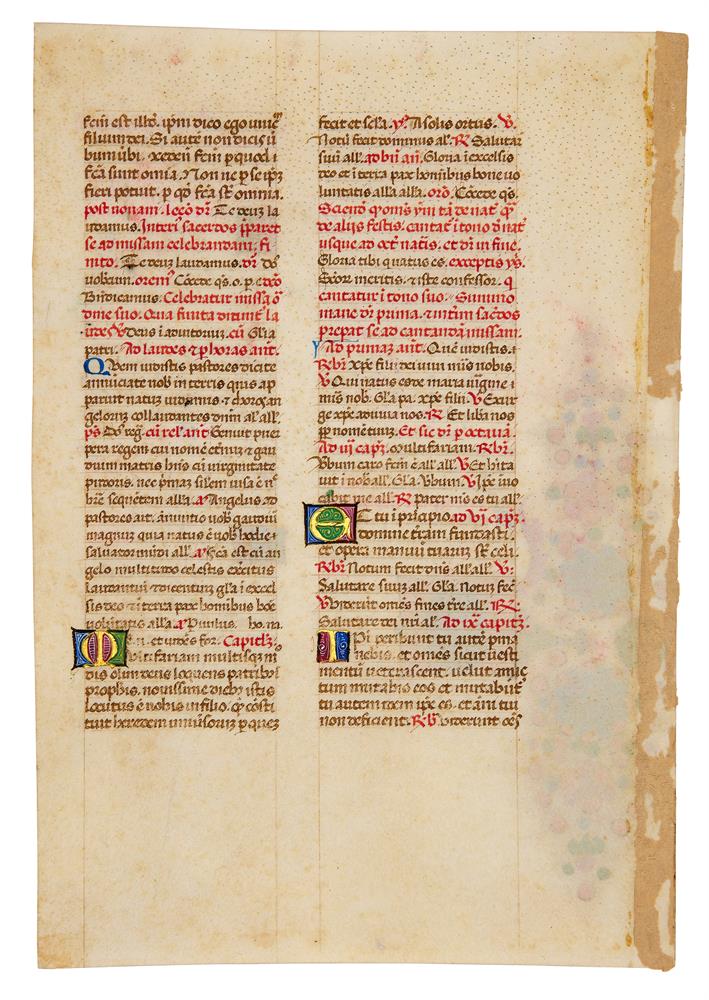 fcm̄ est illđ. ip̄m dico ego unı̄e
filium dei. Si autē non dicis ū
bum ūbi
fc̄a sunt omia. Non ne p se ip̄z
fieri potuit. p q̄đ fc̄a st̄ omnia.
post nonam. lec̄o dr̄ Te deuz la
udamus. Interī sacerdos p̄paret
se ad missam celebrandam. fi
nito. Te deuz laudamus. dr̄ dn̄s
vobiscum. orem⁹ Cōcede qs. o. p. e deo
Bn̄dicamus. Celebratur missa ō
dine suo. Qua finita dicunt̄ la
Deus ī adiutoriuz. cū Gl̄ia
patri. Ad laudes ⁊ p horas ant̄.
Quem vidistis pastores dicite
annūciate nob̄ in terris quis ap
paruit natuz vidimus. ⁊ choros an
geloruz collaudantes dn̄m al̄ all̄.
ps̄ Dn̄s reḡ. cū rel̄ ant̄ Genuit puer
pera regem cui nomē et̄nuz ⁊ gau
dium matris hn̄s cū virginitate
pudoris. nec p̄maz sil̄em visa ē n̄c
hr̄e sequētem all̄a. a Angelus ad
pastores ait. ānuntio vob̄ gaudiū
magnuz quia natus ē vob̄ hodie
salvator mūdi all̄. a Fc̄a est cū an
gelo multitudo celestis exercitus
laudantiū ⁊ dicentiuz gl̄a ī excel
sis deo ⁊ ī terra pax hoībus boē
volūtatis all̄a. a Paruulus. ho. na.
ē n. et vodēs for. Capitl̄z
Multifariam multisq̄z m
dis olim deus loquens patribz
prophīs. novissime diebz istis
locutus ē nobis in filio. qz cōsti
tuit heredem universoruz p quez
fecit et scl̄a. ℣ A solis ortus. ℣.
Notū fecit dominus al̄. ℟ Salutar̄
suū all̄. ad bn̄ an̄. Gloria ī excelsis
deo et ī terra pax hoībus bone vo
luntatis all̄a all̄a. orō. Cōcede qs.
Sciend q̄ om̄s ym̄
de alijs festis. cantāt ī tono d̄ nat̄
usque ad oct̄ natīs. et dr̄ in fine.
Gloria tibi qui natus es. exceptis ys.
Exōr meritis. ⁊ iste confessor. q
cantatur ī tono suo. Summo
mane dr̄ prima. ⁊ int̄im sac̄dos
prepat̄ se ad cantandā missam.
Ad primaz ant̄. Quē vidistis.
Rb̄r. xp̄e fili dei vivi mis̄ nobis.
℣ Qui natus es de maria v̄gine
mis̄ nob̄. Gl̄a pa. xp̄e filī ℣ Exur
ge xp̄e adiuva nos. ℟ Et liba nos
pp̄ nomē tuuz. Et sic dr̄ p octavā.
Ad iij capz. Multifariam. Rb̄r.
Vbum caro fcm̄ ē all̄ all̄. ℣ Et hīta
vit ī nob̄ all̄. Gl̄a. Vbum ℣ Ip̄e īvo
cabit me all̄. ℟ Pater m̄s es tu all̄.
Et tu ī principio ad vj capz.
domine t̄ram fundasti.
et opera manuū tuaruz st̄ celi.
Rb̄r. Notum fecit dn̄s all̄ all̄. ℣.
Salutare suuz all̄. Gl̄a. Notuz fec̄
℣ Viderūt omēs fines t̄re all̄. ℟.
Salutare dei nr̄i al̄. Ad ix capitz.
Ipi peribunt tu autē p̄ma
nebis. et omēs sicut vesti
mentū veterascent. ⁊ velut amic
tum mutabis eos et mutabūt̄
tu autem idem ip̄e es. et an̄i tui
non deficient. Rb̄ Viderunt oēs